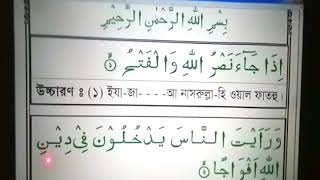 بِسْمِ اللهِ الرَّحْمٰنِ الرَّحِيْمِ
اِذَا جَآءَ نَصْرُ اللهِ وَالْفَتْحُ ۝۱
উচ্চারণ : (১) ইযা-জা- - - -আ নাসরুল্লা-হি ওয়াল ফাতহু ।
وَرَاَيْتَ النَّاسَ يَدْخُلُوْنَ فِيْ دِيْنِ
اللهِ اَفْوَاجًا ۝۲